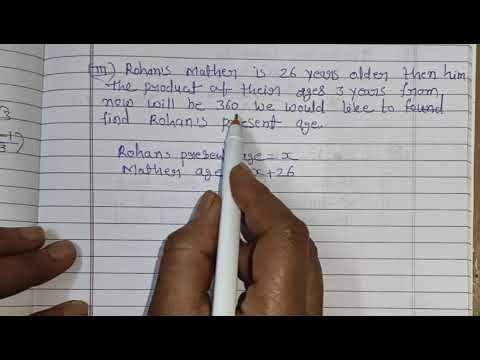 (iii) Rohan's Mather is 26 years older then him
the product of their ages 3 years from
now will be 360 we would like to found
find Rohan's present age.
Rohan's present age = x
Mather age x+26
3
-1